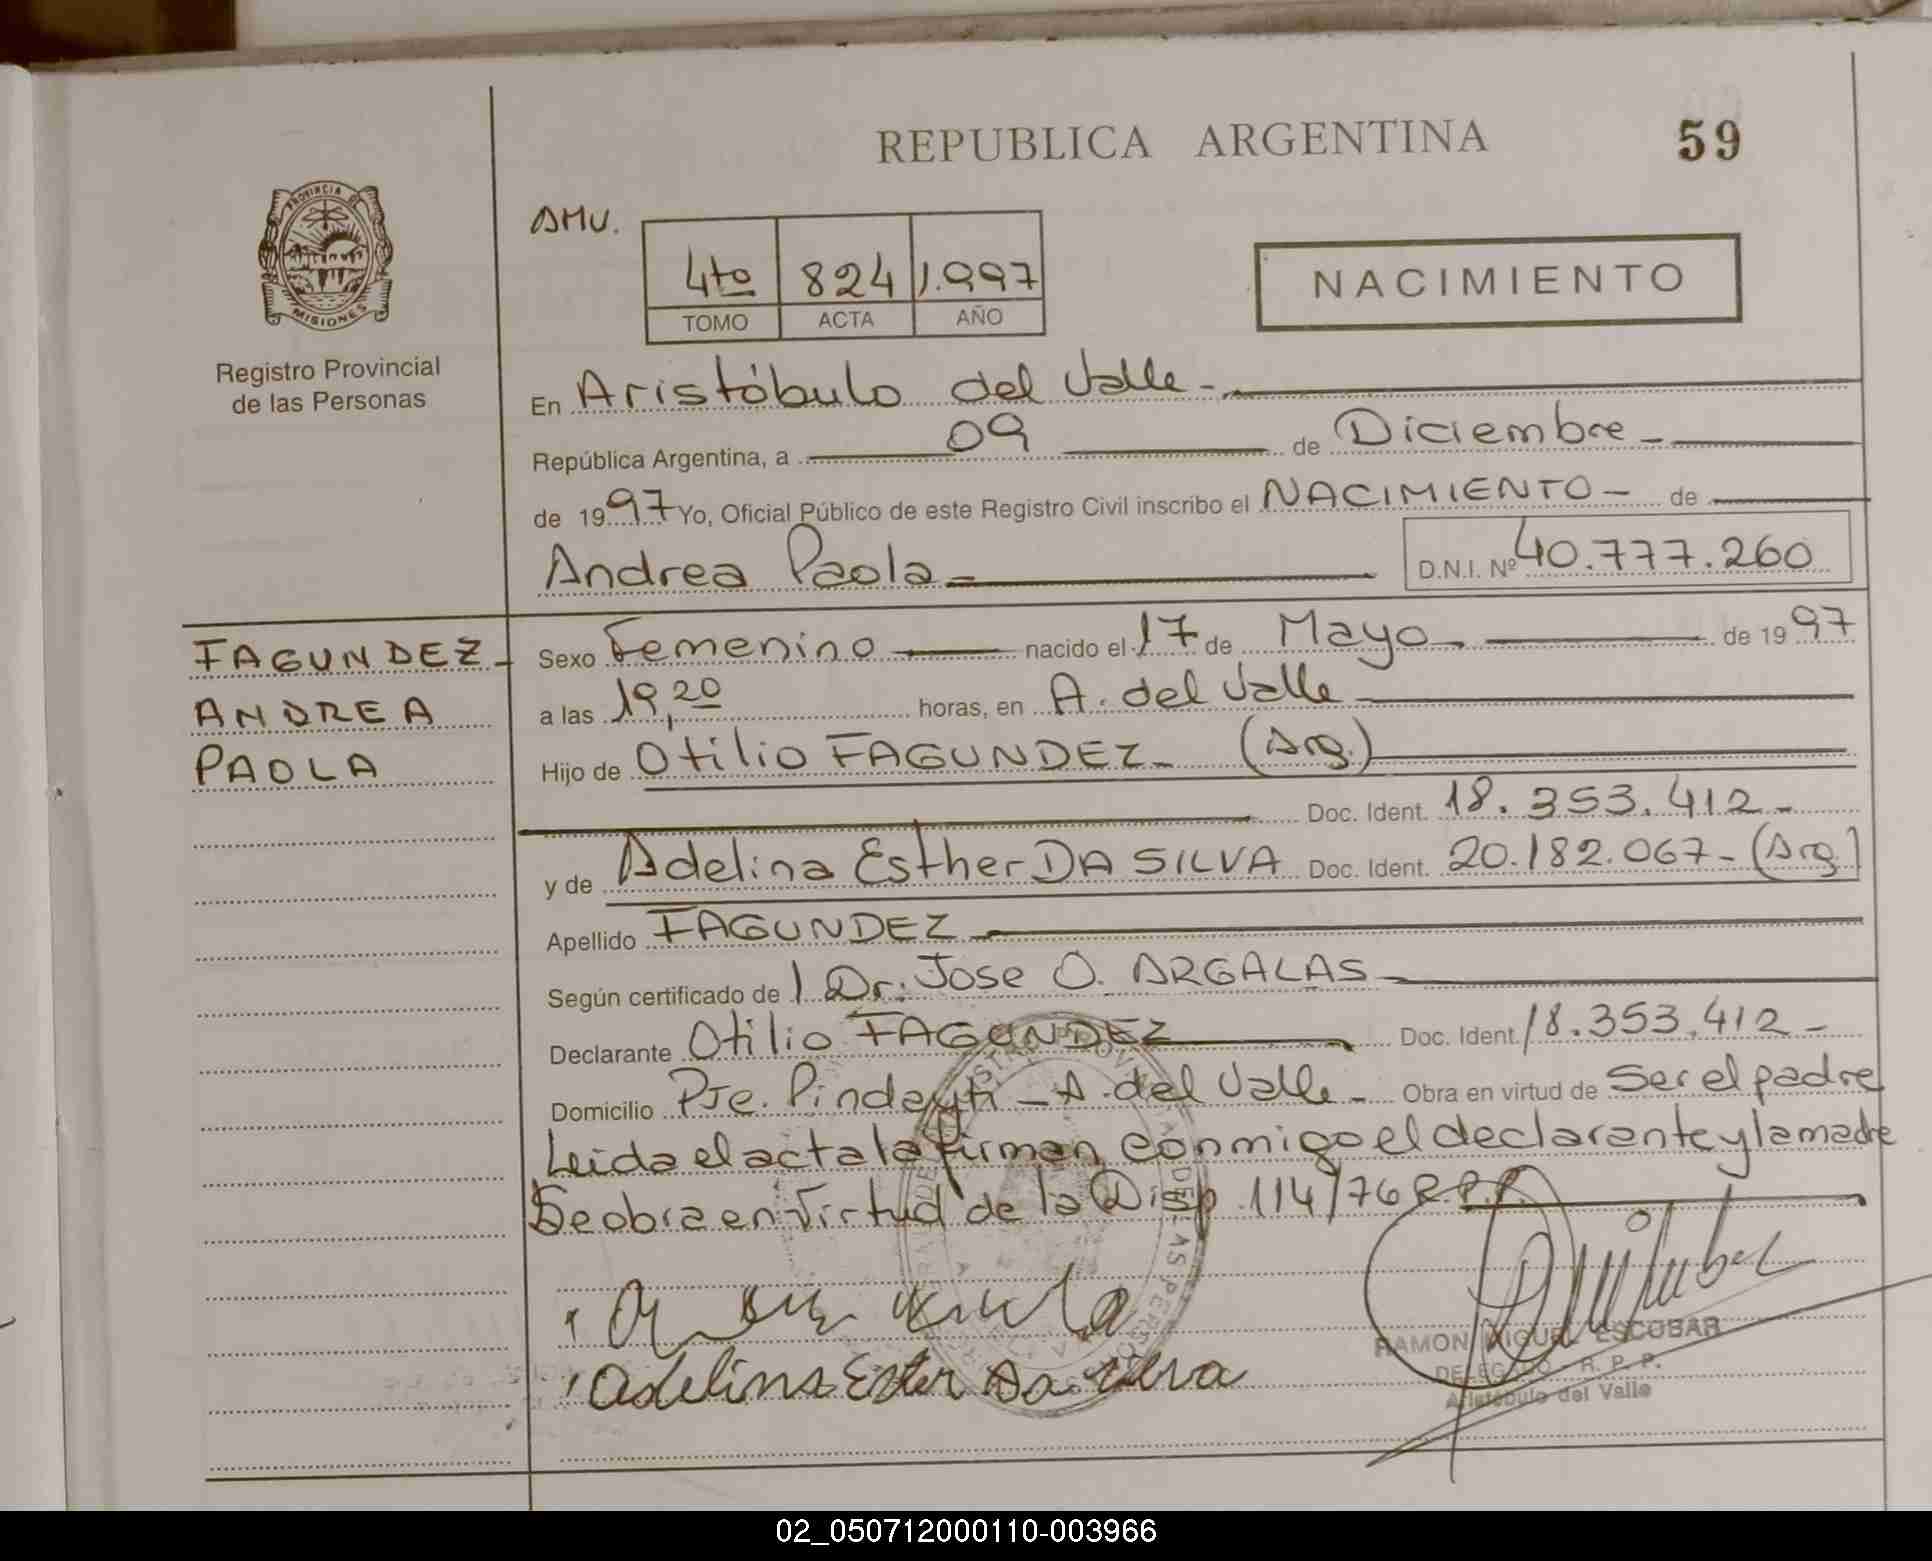 REPUBLICA ARGENTINA
59
PROVINCIA DE
MISIONES
Registro Provincial
de las Personas
AMV.
4to 824 1.997
TOMO ACTA AÑO
NACIMIENTO
En Aristóbulo del Valle -
República Argentina, a 09 de Diciembre -
de 1997 Yo, Oficial Público de este Registro Civil inscribo el NACIMIENTO - de
Andrea Paola - D.N.I. Nº 40.777.260
FAGUNDEZ -
ANDREA
PAOLA
Sexo Femenino nacido el 17 de Mayo - de 1997
a las 19,20 horas, en A. del Valle
Hijo de Otilio FAGUNDEZ - (Arg.)
Doc. Ident. 18.353.412 -
y de Adelina Esther DA SILVA Doc. Ident. 20.182.067 - (Arg.)
Apellido FAGUNDEZ
Según certificado de 1 Dr: Jose O. ARGALAS
Declarante Otilio FAGUNDEZ Doc. Ident. 18.353.412 -
Domicilio Pje. Pindayti - A. del Valle - Obra en virtud de Ser el padre
Leida el acta la firman conmigo el declarante y la madre
Se obra en virtud de la Disp 114/76 R.P.P.
Adelina Ester Da silva
RAMON MIGUEL ESCOBAR
DELEGADO - R. P. P.
Aristóbulo del Valle
02_050712000110-003966